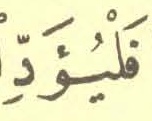 فَلْيُؤَدِّ